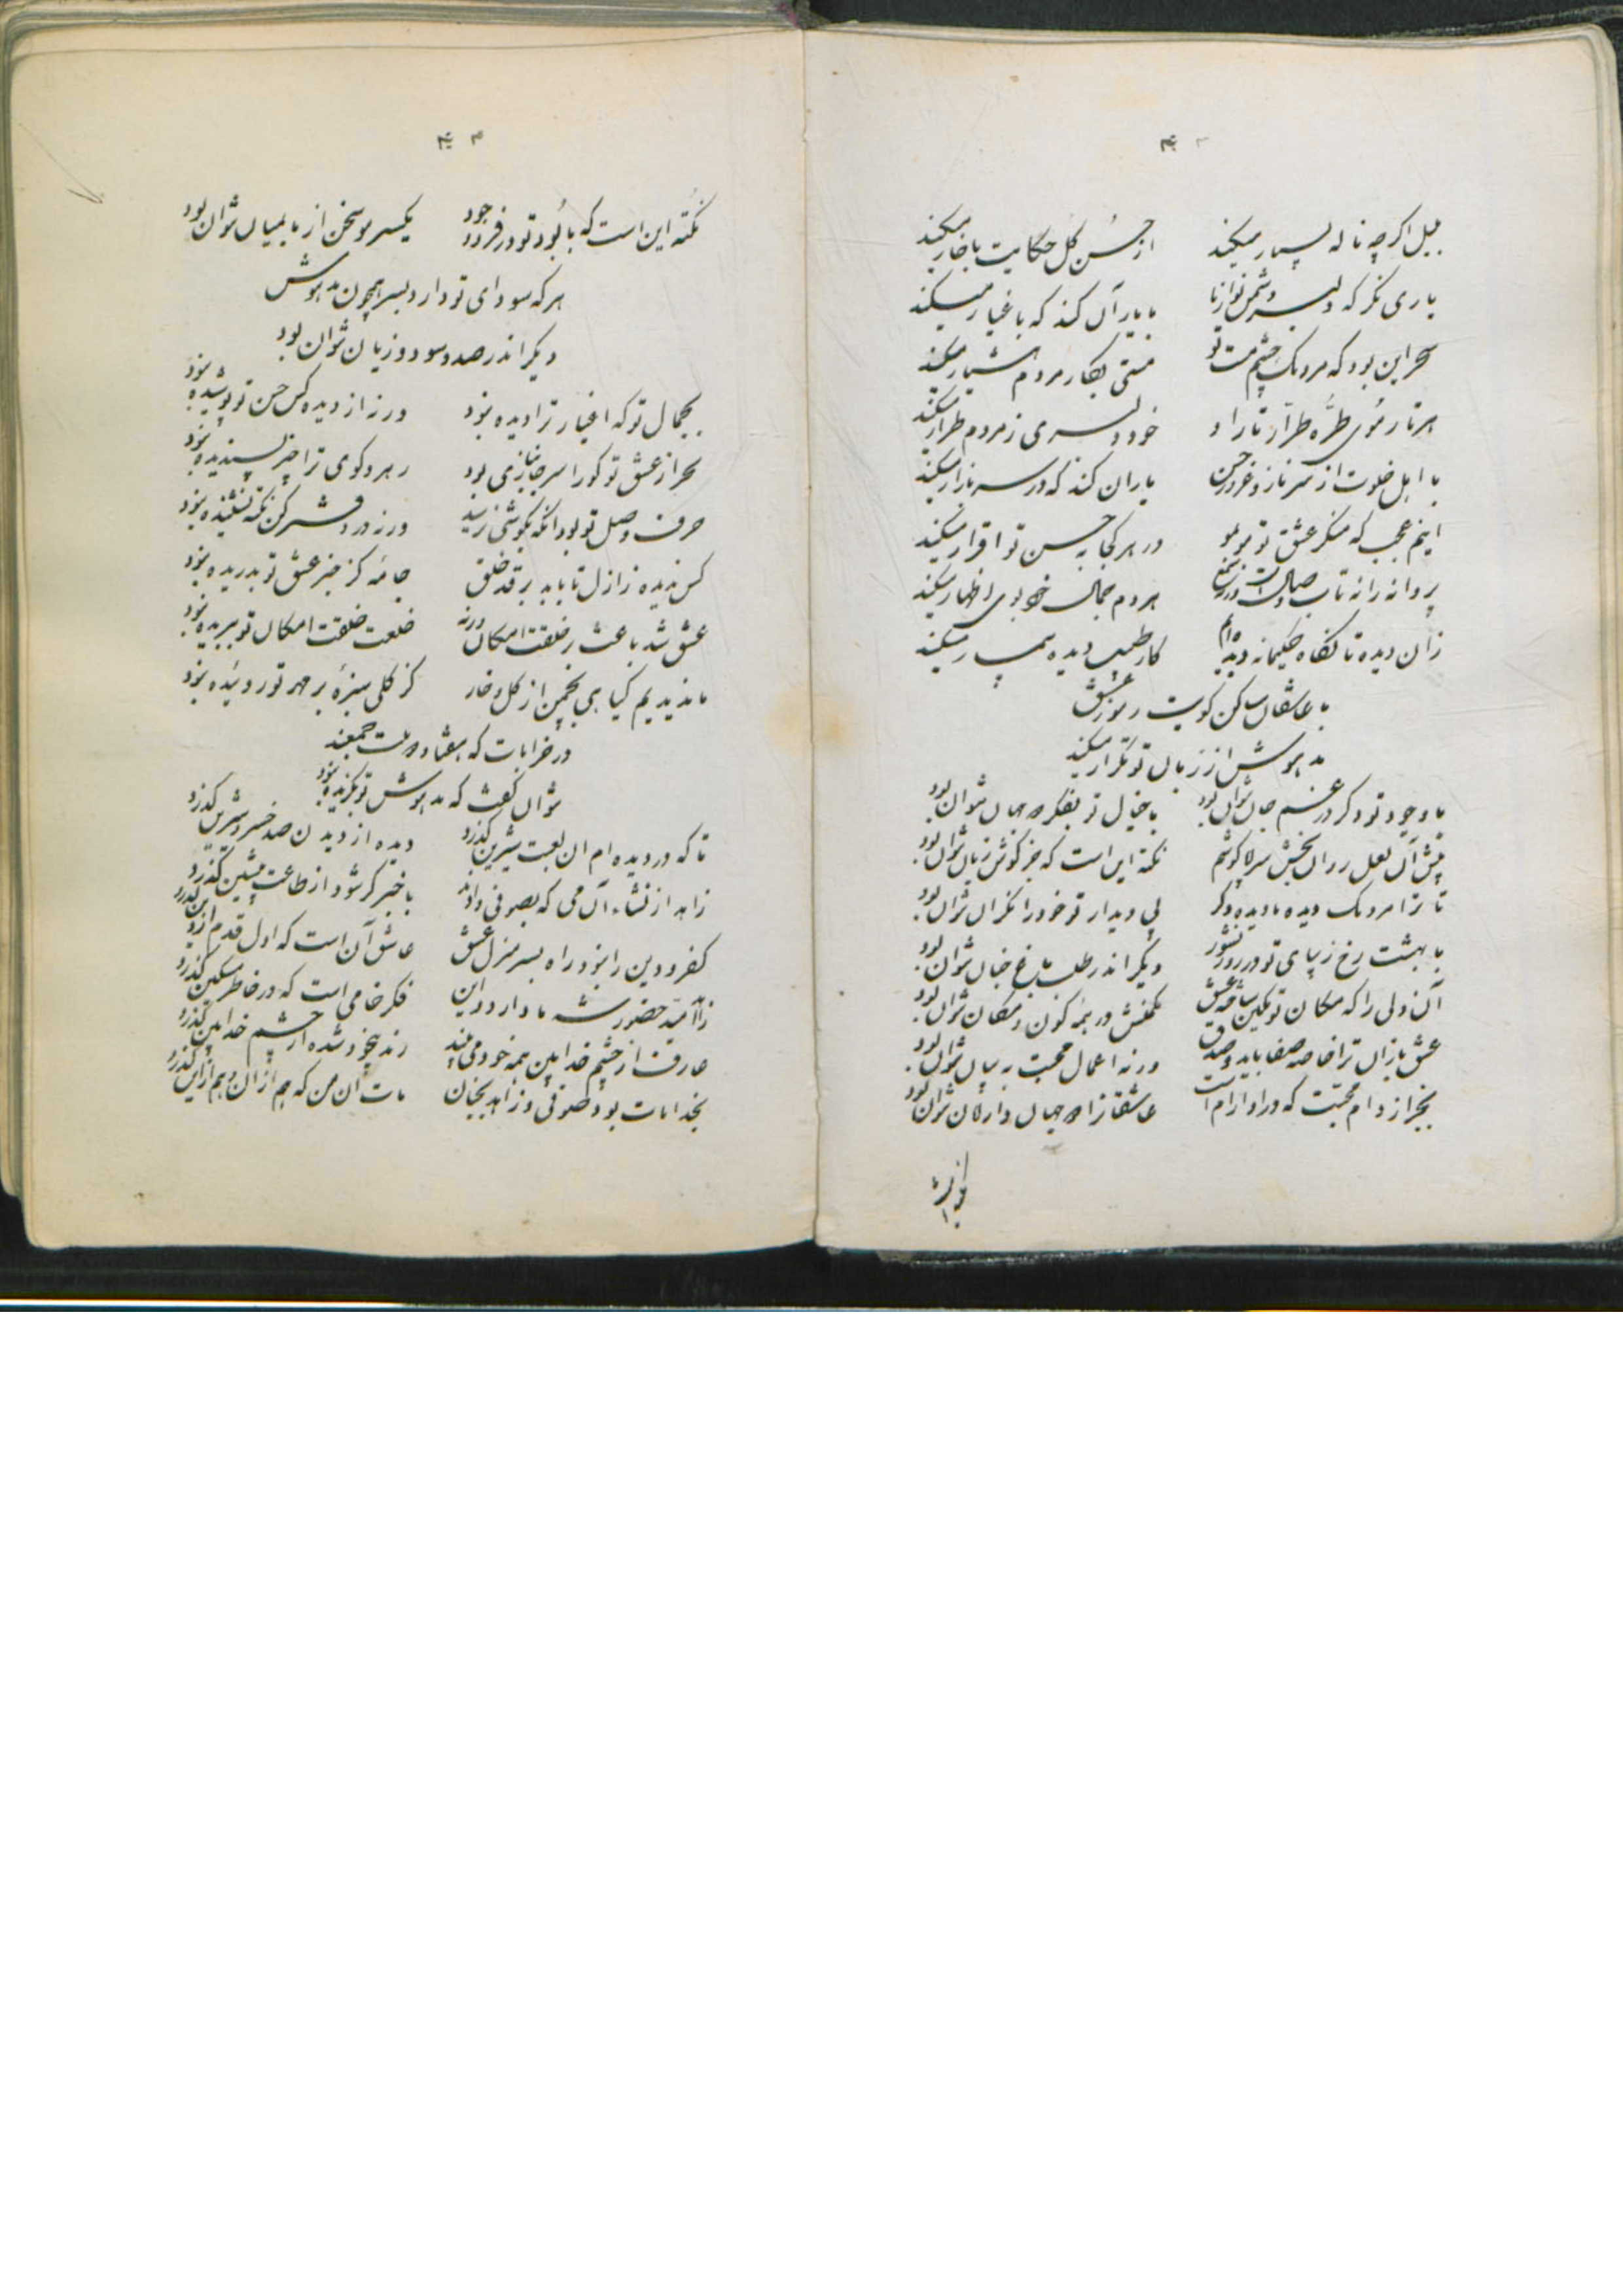 بلبل اگرچه ناله بسیار میکند از حسن گل حکایت با خار میکند
یاری نگر که دلبر دشمن نواز ما با یار آن کند که با غیار میکند
سحر این بود که مردمک چشم مست تو مستی بکار مردم هشیار میکند
هر تار موی طره طرار تار او خود دلبری ز مردم طرار میکند
با اهل خلوت از سر ناز و غرور حسن یاران کند که در سر بازار میکند
اینم عجب که منکر عشق تو مو بمو در هر کجا به حسن تو اقرار میکند
پروانه را نه تاب وصال است و هر دم جمال خود بوی اظهار میکند
زان دیده تا نگاه حکیمانه دیده‌ام کار طبیب دیده بیمار میکند
با عاشقان ساکن کویت رموز عشق
مدهوش از زبان تو تکرار میکند
با وجود تو دگر در غم جان نتوان بود با خیال تو بفکر دو جهان نتوان بود
پیش آن لعل روان بخش سراپا گوشم نکته این است که جز گوش زبان نتوان بود
تا ترا مردمک دیده ما دیده دگر پی دیدار تو خود را نگران نتوان بود
با بهشت رخ زیبای تو در روز نشور دیگر اندر طلب باغ جنان نتوان بود
آن دلی را که مکان تو مکین ساخته عشق ممکنش در همه کون و مکان نتوان بود
عشق بازان ترا خاصه صفا باید و صدق ورنه اعمال محبت به بیان نتوان بود
بجز از دام محبت که در او آرام است عاشقانرا دو جهان دار امان نتوان بود
نکته این است که با بود تو در فرد وجود یکسر مو سخن از ما بمیان نتوان بود
هر که سودای تو دارد بسر همچون مدهوش
دیگر اندر صدد سود و زیان نتوان بود
بجمال تو که اغیار ترا دیده نبود ورنه از دیده کس حسن تو پوشیده نبود
بجز از عشق تو کو را سر جانبازی بود رهرو کوی ترا چیز پسندیده نبود
حرف وصل تو بود آنکه بگوشی نرسید ورنه در دفتر کن نکته نشنیده نبود
کس ندیده ز ازل تا بابد بر قد خلق جامه کز خنجر عشق تو بدریده نبود
عشق شد باعث بر خلقت امکان ورنه خلعت خلقت امکان تو ببریده نبود
ما ندیدیم گیاهی بچمن از گل و خار کز گلی سبزه بر مهر تو روئیده نبود
در خرابات که هفتاد و دو ملت جمعند
نتوان گفت که مدهوش تو بگزیده نبود
تا که در دیده‌ام آن لعبت شیرین گذرد دیده از دیدن صد خسرو شیرین گذرد
زاهد از نشاء آن می که بصوفی دادند با خبر گر شود از طاعت پیشین گذرد
کفر و دین را نبود راه بسر منزل عشق عاشق آن است که اول قدم از دین گذرد
زاهد امید حضور شه ما دارد و این فکر خامی است که در خاطر مسکین گذرد
عارف از چشم خدا بین همه خود می بیند رند بیخود شده از چشم خدا بین گذرد
بخدا مات بود صوفی و زاهد بجنان مات آن من که هم از آن و هم از این گذرد